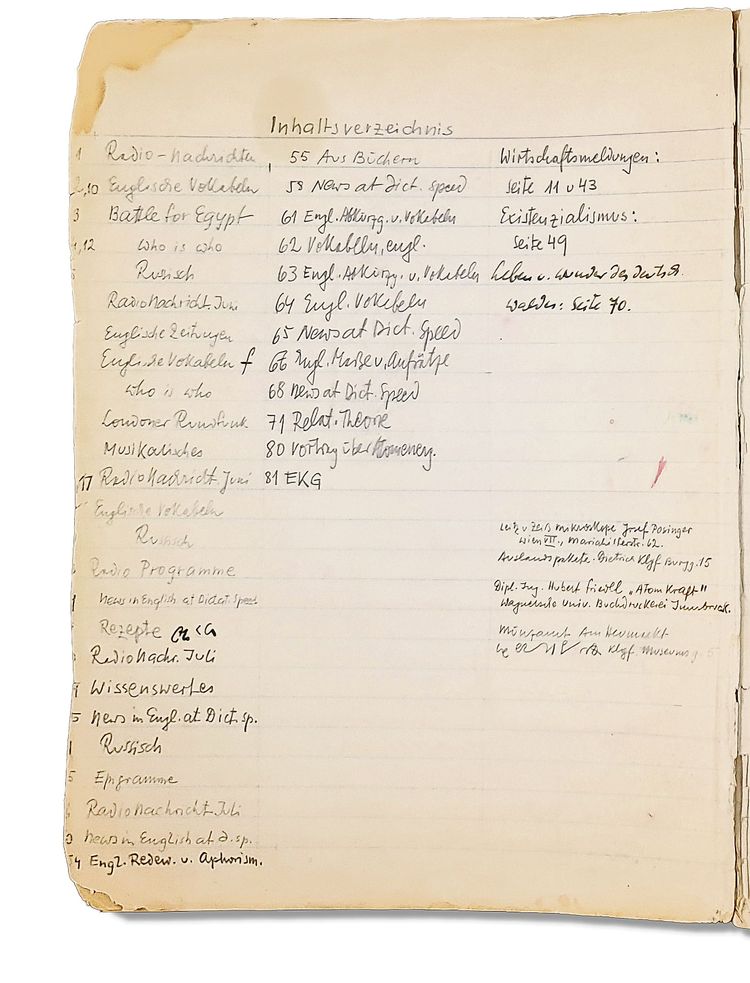 Inhaltsverzeichnis
1 Radio-Nachrichten
2,10 Englische Vokabeln
3 Battle for Egypt
,12 who is who
Russisch
Radio Nachricht. Juni
Englische Zeitungen
Englische Vokabeln f
who is who
Londoner Rundfunk
Musikalisches
,17 Radio Nachricht. Juni
Englische Vokabeln
Russisch
Radio Programme
News in English at Dictat. Speed
Rezepte
Radio Nachr. Juli
Wissenswertes
5 News in Engl. at Dict. sp.
1 Russisch
5 Epigramme
Radio Nachricht Juli
News in English at d. sp.
54 Engl. Redew. u. Aphorism.
55 Aus Büchern
58 News at Dict. Speed
61 Engl. Abkürzg. u. Vokabeln
62 Vokabeln, engl.
63 Engl. Abkürzg. u. Vokabeln
64 Engl. Vokabeln
65 News at Dict. Speed
66 Engl. Maße u. Aufsätze
68 News at Dict. Speed
71 Relat. Theorie
80 Vortrag über
81 EKG
Wirtschaftsmeldungen:
Seite 11 u 43
Existenzialismus:
Seite 49
Leben u. Wunder des deutsch.
Waldes: Seite 70.
Leitz u Zeiß Mikroskope Josef Posinger
Wien VII., Mariahilferstr. 62.
Auslandspakete. Dietrich Klgf Burgg. 15
Dipl. Ing. Hubert Friedl "Atom Kraft"
Wagnersche Univ. Buchdruckerei Innsbruck.
Münzamt Am Heumarkt
Klgf. Museumsg. 5